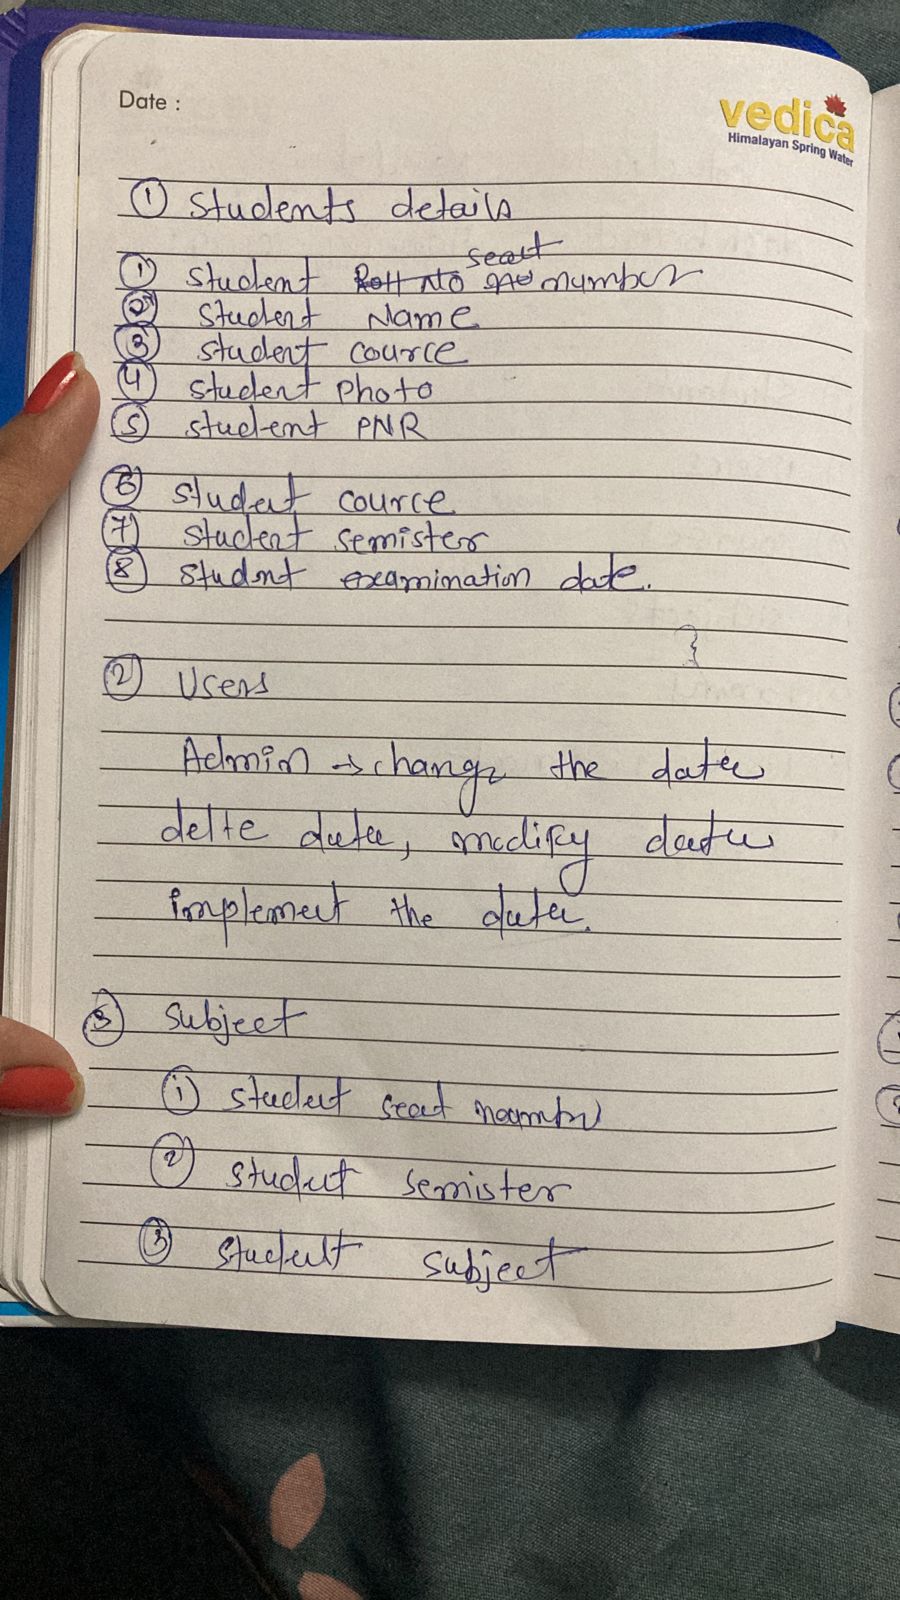 Date :
vedica
Himalayan Spring Water
① Students details
seat
① Student Roll No number
② Student Name
③ Student cource
④ Student Photo
⑤ Student PNR
⑥ Student cource
⑦ Student semister
⑧ Studnt examination date.
② Users
Admin → change the data
delte data, modify data
implement the data.
③ Subject
① Student seat noumbr
② Student semister
③ Student subject